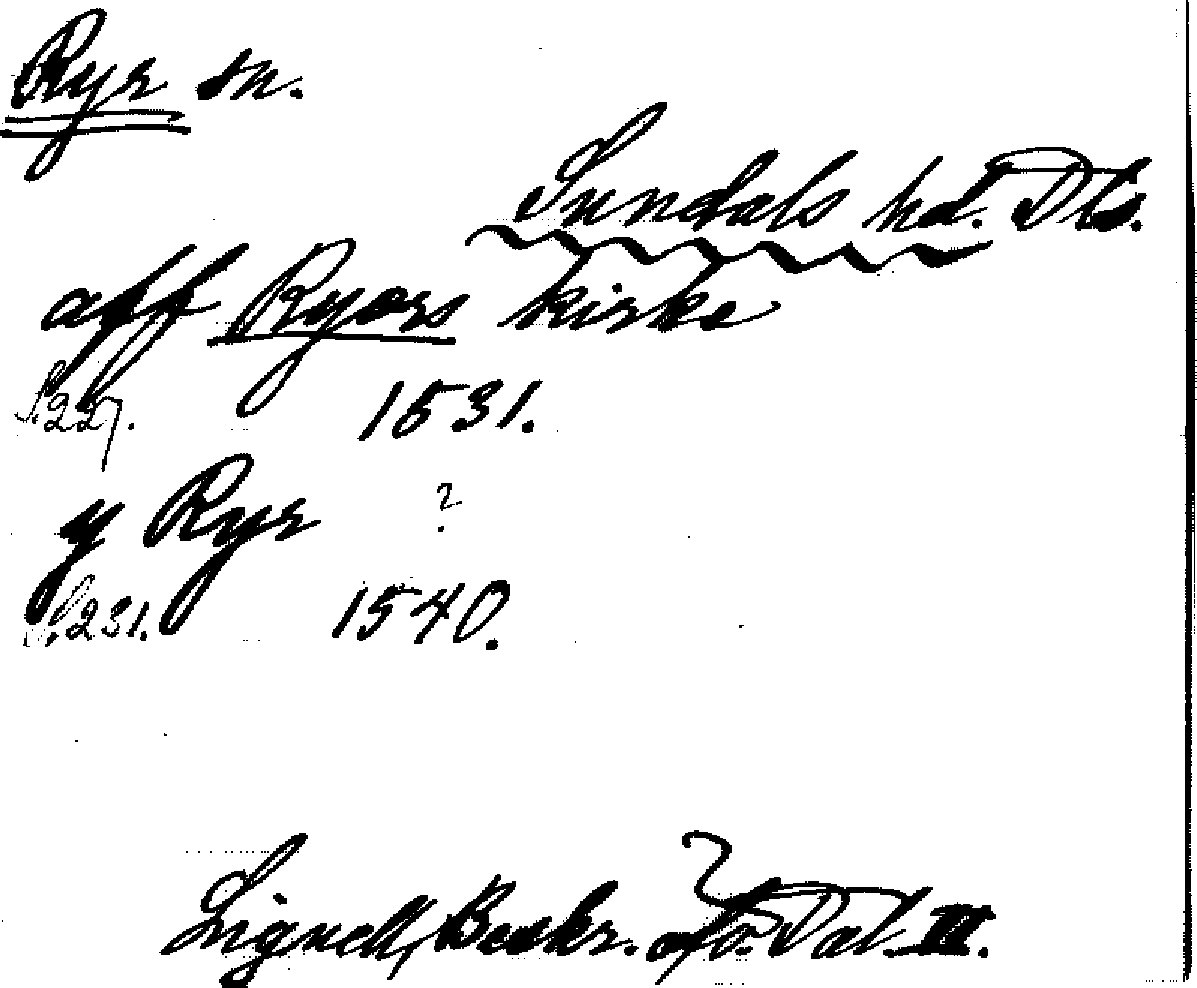 Ryr sn.
Sundals hd. Dls.
aff Ryors kirke
S. 227. 1531.
y Ryr ?
S. 231. 1540.
Lignell, Beskr. öfv. Dal. II.